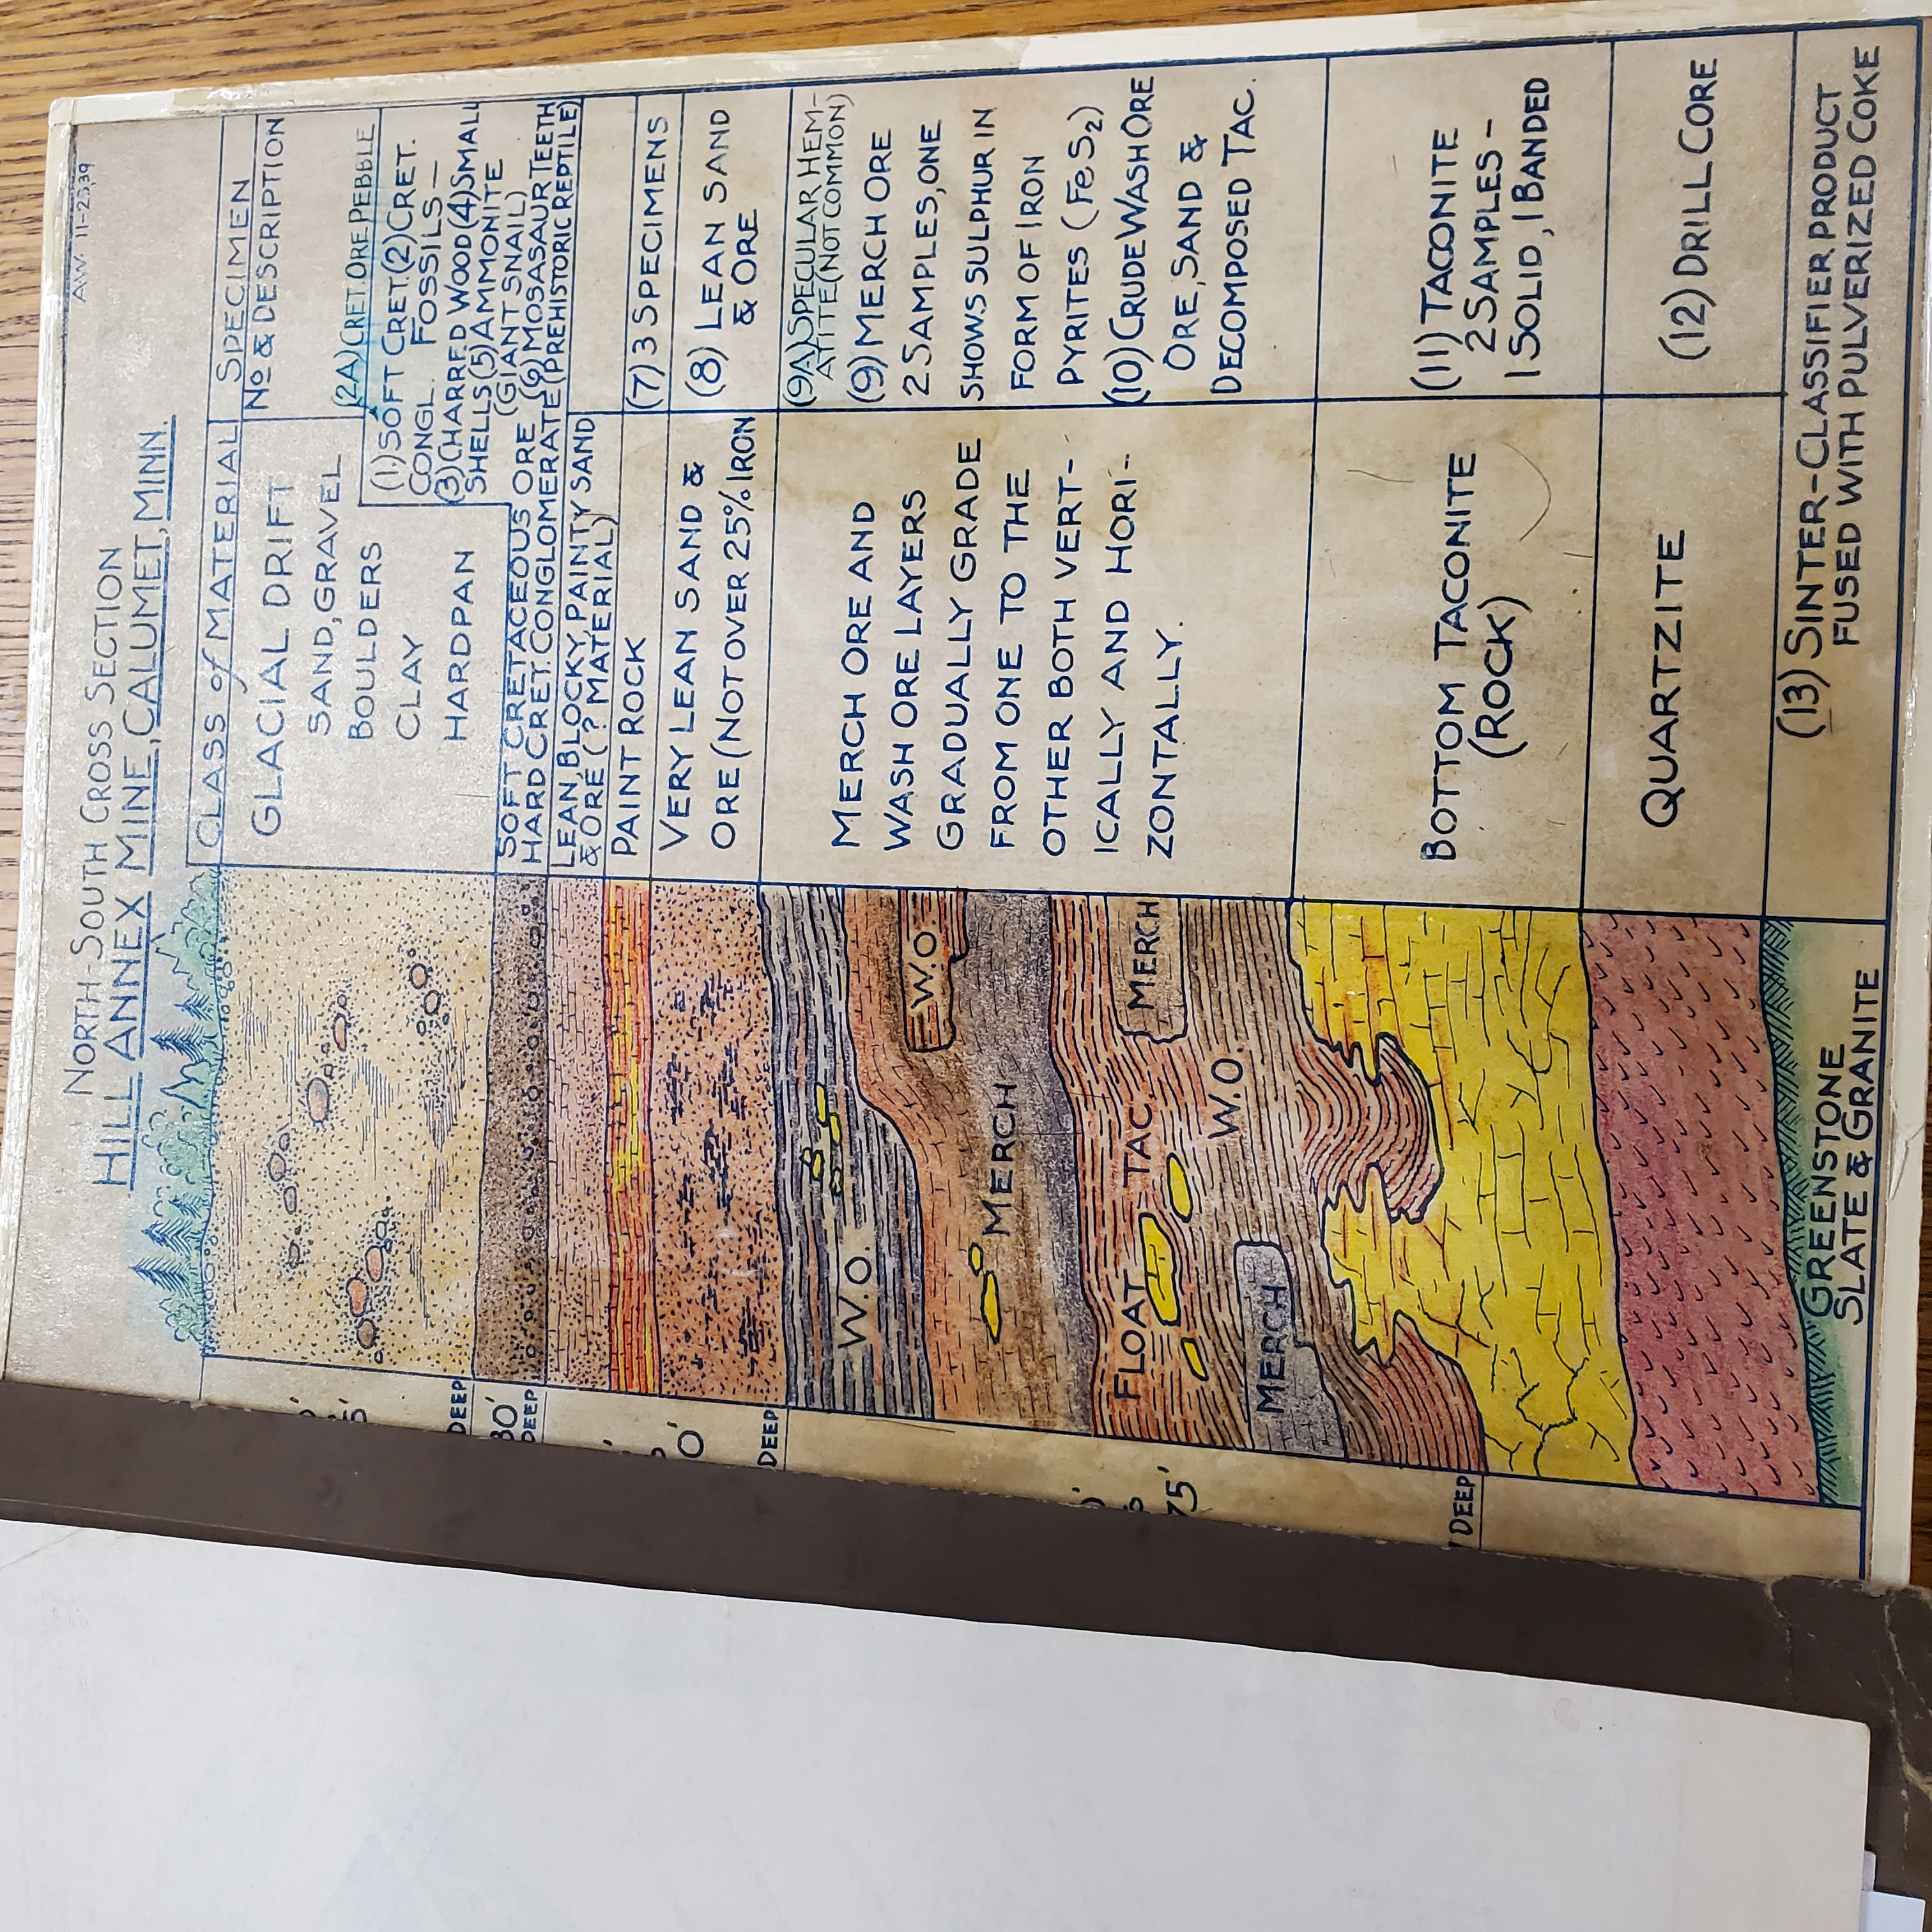 AW. 11-25-39
NORTH-SOUTH CROSS SECTION
HILL ANNEX MINE, CALUMET, MINN.
CLASS of MATERIAL
SPECIMEN
Nº & DESCRIPTION
GLACIAL DRIFT
SAND, GRAVEL
BOULDERS
CLAY
HARDPAN
(2A) CRET. ORE PEBBLE
(1) SOFT CRET. (2) CRET.
CONGL. FOSSILS—
(3) CHARRED WOOD (4) SMALL
SHELLS (5) AMMONITE
(GIANT SNAIL)
(6) MOSASAUR TEETH
(PREHISTORIC REPTILE)
SOFT CRETACEOUS ORE
HARD CRET. CONGLOMERATE
LEAN, BLOCKY, PAINTY SAND
& ORE (? MATERIAL)
PAINT ROCK
(7) 3 SPECIMENS
VERY LEAN SAND &
ORE (NOT OVER 25% IRON
(8) LEAN SAND
& ORE
MERCH ORE AND
WASH ORE LAYERS
GRADUALLY GRADE
FROM ONE TO THE
OTHER BOTH VERT-
ICALLY AND HORI-
ZONTALLY.
(9A) SPECULAR HEM-
ATITE (NOT COMMON)
(9) MERCH ORE
2 SAMPLES, ONE
SHOWS SULPHUR IN
FORM OF IRON
PYRITES (FeS2)
(10) CRUDE WASH ORE
ORE, SAND &
DECOMPOSED TAC.
BOTTOM TACONITE
(ROCK)
(11) TACONITE
2 SAMPLES -
1 SOLID, 1 BANDED
QUARTZITE
(12) DRILL CORE
(13) SINTER-CLASSIFIER PRODUCT
FUSED WITH PULVERIZED COKE
W.O.
W.O.
MERCH
MERCH
FLOAT TAC.
W.O.
MERCH
GREENSTONE
SLATE & GRANITE
DEEP
DEEP
DEEP
75'
DEEP